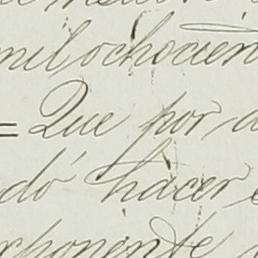 mil ochocien
= Que por a
dó hacer e
rponente